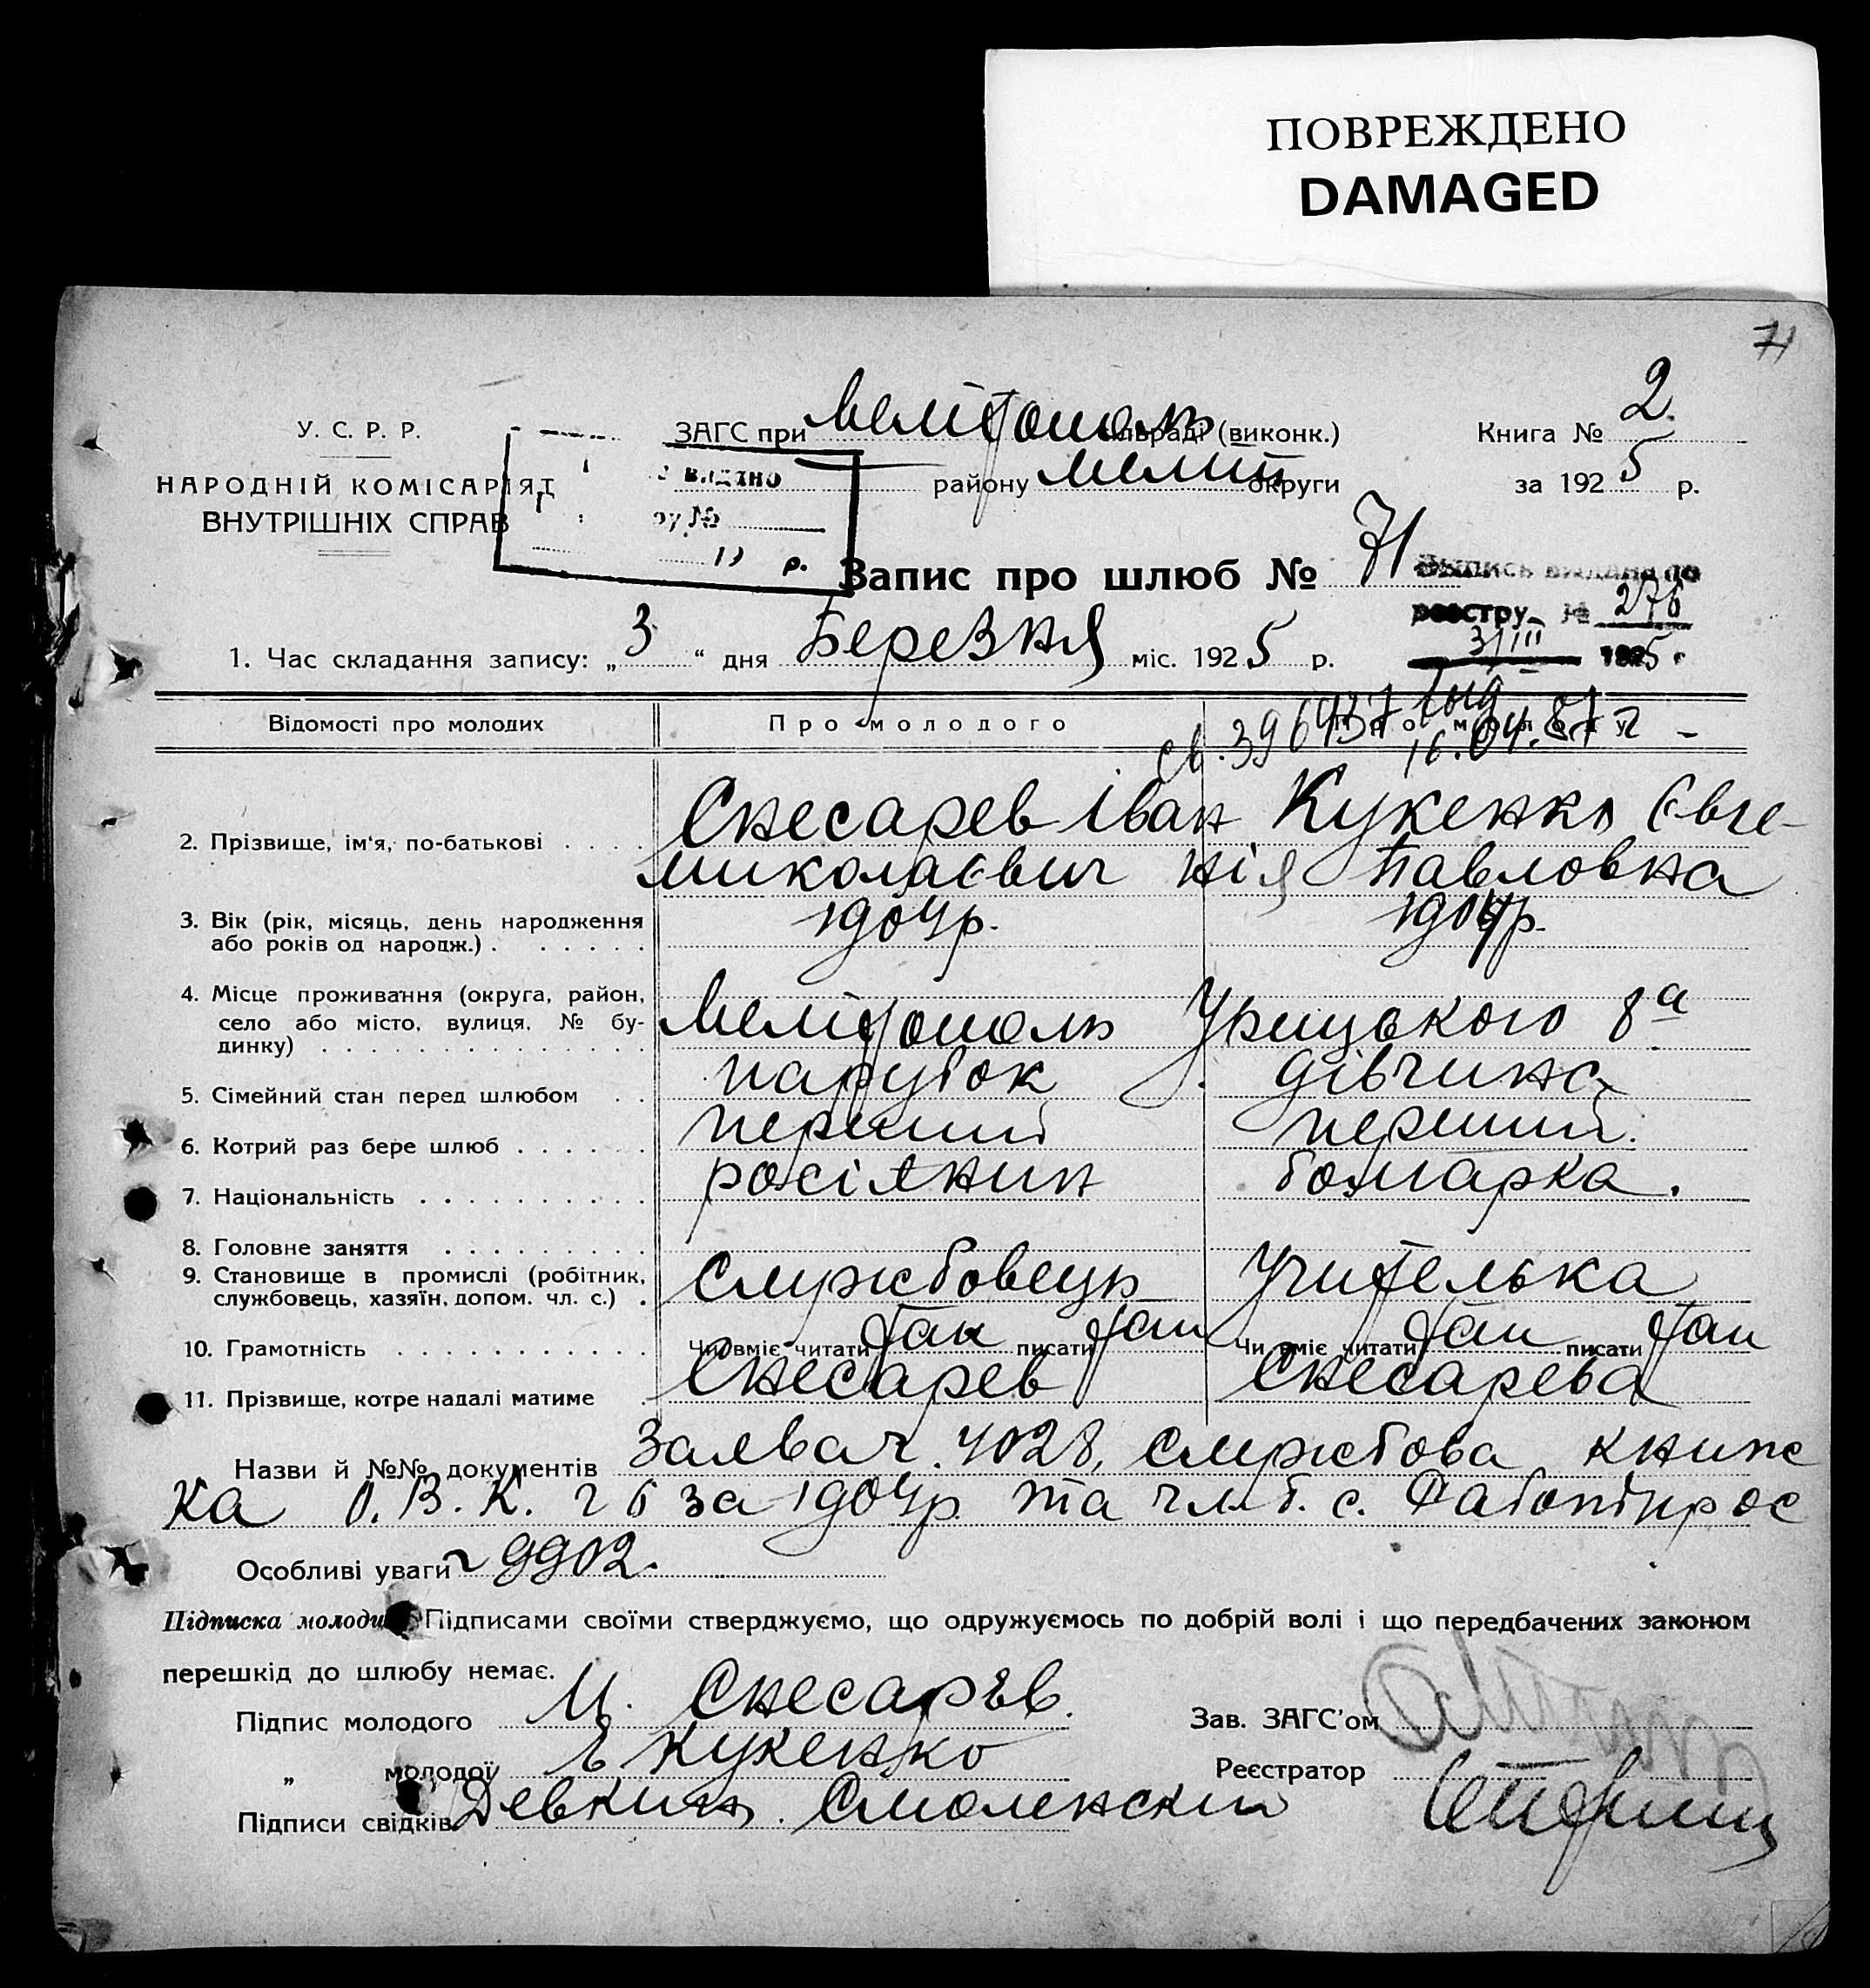 ПОВРЕЖДЕНО
DAMAGED
71
У. С. Р. Р.
НАРОДНІЙ КОМІСАРІЯТ
ВНУТРІШНІХ СПРАВ
ЗАГС при Мелітополь сільраді (виконк.)
району Меліт округи
Книга № 2.
за 1925 р.
видано
№
19 р.
Запис про шлюб № 71
Выпись выдана по
реестру № 276
3/III 1925.
1. Час складання запису: „3“ дня Березня міс. 1925 р.
Відомості про молодих
Про молодого
Про молоду
396437
16.04.87 г
2. Прізвище, ім'я, по-батькові . . . . Снесарев Іван Миколаєвич
Кукенко Євгенія Павловна
3. Вік (рік, місяць, день народження
або років од народж.) . . . . . . 1904р.
1904р.
4. Місце проживання (округа, район,
село або місто, вулиця, № бу-
динку) . . . . . . . . . . . . . . Мелітополь Урицького 8а
5. Сімейний стан перед шлюбом . . парубок
дівчина
6. Котрий раз бере шлюб . . . . . . перший
перший.
7. Національність . . . . . . . . . . росіянин
болгарка.
8. Головне заняття . . . . . . . . .
9. Становище в промислі (робітник,
службовець, хазяїн, допом. чл. с.) . Службовець
Учителька
10. Грамотність . . . . . . . . . . . Чи вміє читати так писати так
Чи вміє читати так писати так
11. Прізвище, котре надалі матиме . Снесарев
Снесарева
Назви й №№ документів Заява ч. 4028, службова книж
ка О. В. К. ч 6 за 1904р. та чл. б. с. Работпрос
Особливі уваги ч 9902.
Підписка молодих Підписами своїми стверджуємо, що одружуємось по добрій волі і що передбачених законом
перешкід до шлюбу немає.
Підпис молодого И. Снесарѣв.
„ молодої Е Кукенко
Підписи свідків Девкин. Смоленский
Зав. ЗАГС'ом
Реєстратор